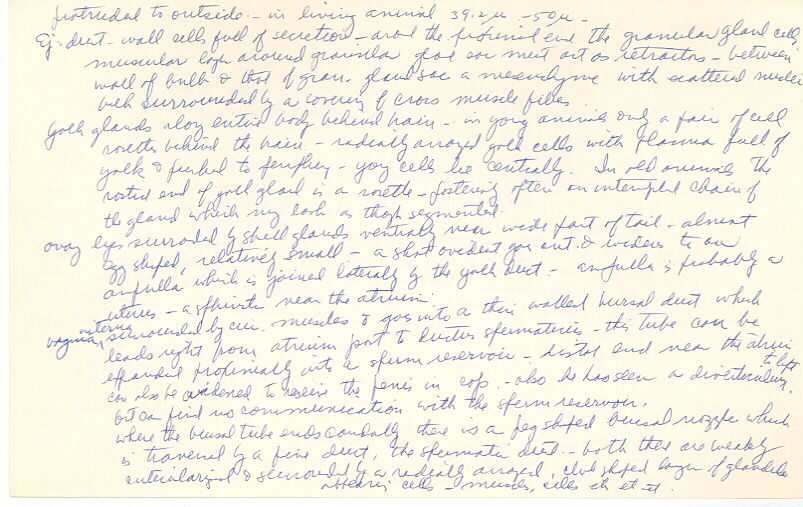 protruded to outside - in living animal 39.2µ - 50µ -
Ej. duct - wall cells full of secretion - around the proximal end the granular gland cells,
muscular layer around granular gland sac must act as retractors - between
wall of bulb & that of gran. gland sac a mesenchyme with scattered nuclei
bulb surrounded by a covering of cross muscle fibers.
Yolk glands along entire body behind brain - in young animals only a pair of cell
rosettes behind the brain - radially arrayed yolk cells with plasma full of
yolk & pushed to periphery - young cells lie centrally. In old animals the
rostral end of yolk gland is a rosette - posteriorly often an interrupted chain of
the gland which may look as though segmented.
ovary lies surrounded by shell glands ventrally near wide part of tail - almost
egg shaped, relatively small - a short oviduct goes out & widens to an
ampulla which is joined laterally by the yolk duct - ampulla is probably a
uterus - a sphincter near the atrium.
vagina interna surrounded by circ. muscles & goes into a thin walled bursal duct which
leads right from atrium part to ductus spermaticus - this tube can be
expanded proximally into a sperm reservoir - distal end near the atrium
can also be widened to receive the penis in cop. - also he has seen a diverticulum to left
but can find no communication with the sperm reservoir.
where the bursal tube ends caudally there is a peg shaped bursal nozzle which
is traversed by a fine duct, the spermatic duct - both these are weakly
cuticularized & surrounded by a radially arrayed, club shaped layer of glandule
appearing cells - muscles, cells